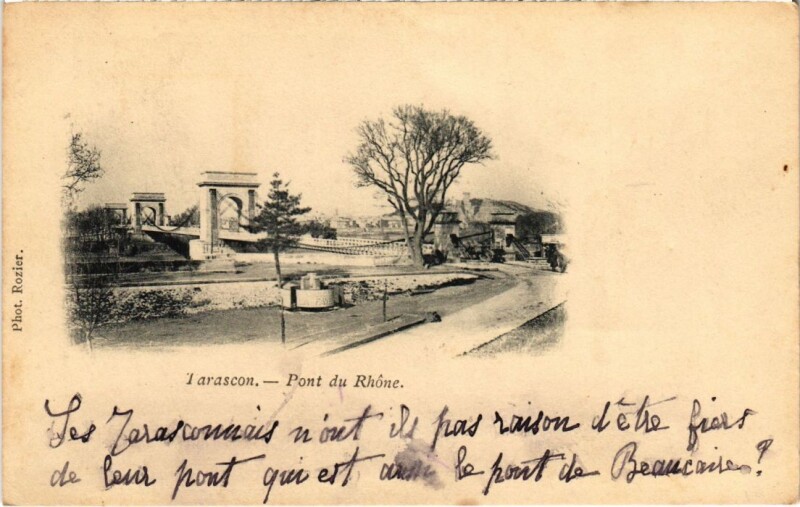 Phot. Rozier.
Tarascon. — Pont du Rhône.
Les Tarasconnais n'ont ils pas raison d'être fiers
de leur pont qui est aussi le pont de Beaucaire ?